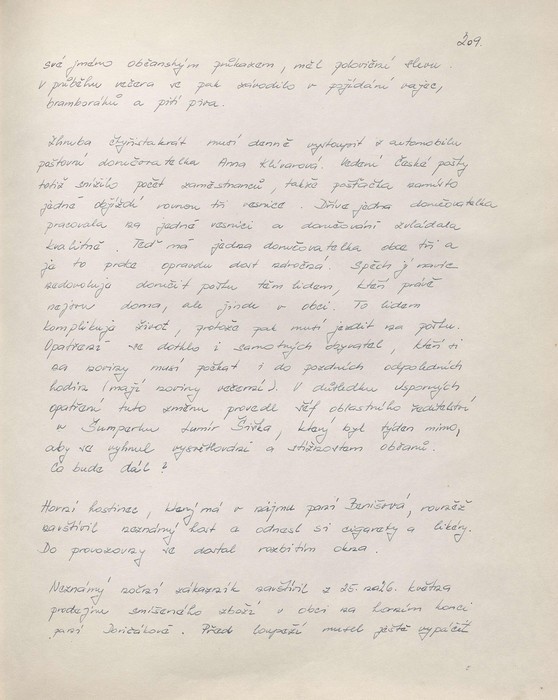 209.
své jméno občanským průkazem, měl poloviční slevu.
V průběhu večera se pak závodilo v pojídání vajec,
bramboráků a pití piva.
Zhruba čtyřistakrát musí denně vystoupit z automobilu
poštovní doručovatelka Anna Klívarová. Vedení České pošty
totiž snížilo počet zaměstnanců, takže pošťačka namísto
jedné objíždí rovnou tři vesnice. Dříve jedna doručovatelka
pracovala za jedné vesnici a doručování zvládala
kvalitně. Teď má jedna doručovatelka obce tři a
je to práce opravdu dost náročná. Spěch jí navíc
nedovoluje doručit poštu těm lidem, kteří právě
nejsou doma, ale jinde v obci. To lidem
komplikuje život, protože pak musí jezdit na poštu.
Opatření se dotklo i samotných obyvatel, kteří si
na noviny musí počkat i do pozdních odpoledních
hodin (mají noviny večerní). V důsledku úsporných
opatření tuto změnu provedl šéf oblastního ředitelství
v Šumperku Lumír Šivka, který byl týden mimo,
aby se vyhnul vysvětlování a stížnostem občanů.
Co bude dál?
Horní hostinec, který má v nájmu paní Benišová, rovněž
navštívil neznámý host a odnesl si cigarety a likéry.
Do provozovny se dostal rozbitím okna.
Neznámý noční zákazník navštívil z 25. na 26. května
prodejnu smíšeného zboží v obci na horním konci
paní. Před loupeží musel ještě vypáčit